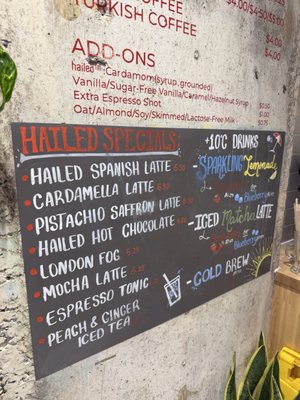 COFFEE
TURKISH COFFEE
$4.00
ADD-ONS
hailed Cardamom(syrup, grounded)
Vanilla/Sugar-Free Vanilla/Caramel/Hazelnut Syrup
Extra Espresso Shot
Oat/Almond/Soy/Skimmed/Lactose-Free Milk
HAILED SPECIALS:
HAILED SPANISH LATTE 6.50
CARDAMELLA LATTE 6.50
PISTACHIO SAFFRON LATTE
HAILED HOT CHOCOLATE
LONDON FOG
MOCHA LATTE
ESPRESSO TONIC
PEACH & GINGER
ICED TEA
+10°C DRINKS
- SPARKLING Lemonade
or
Blueberry
- ICED Matcha LATTE
or
Blueberry
- COLD BREW